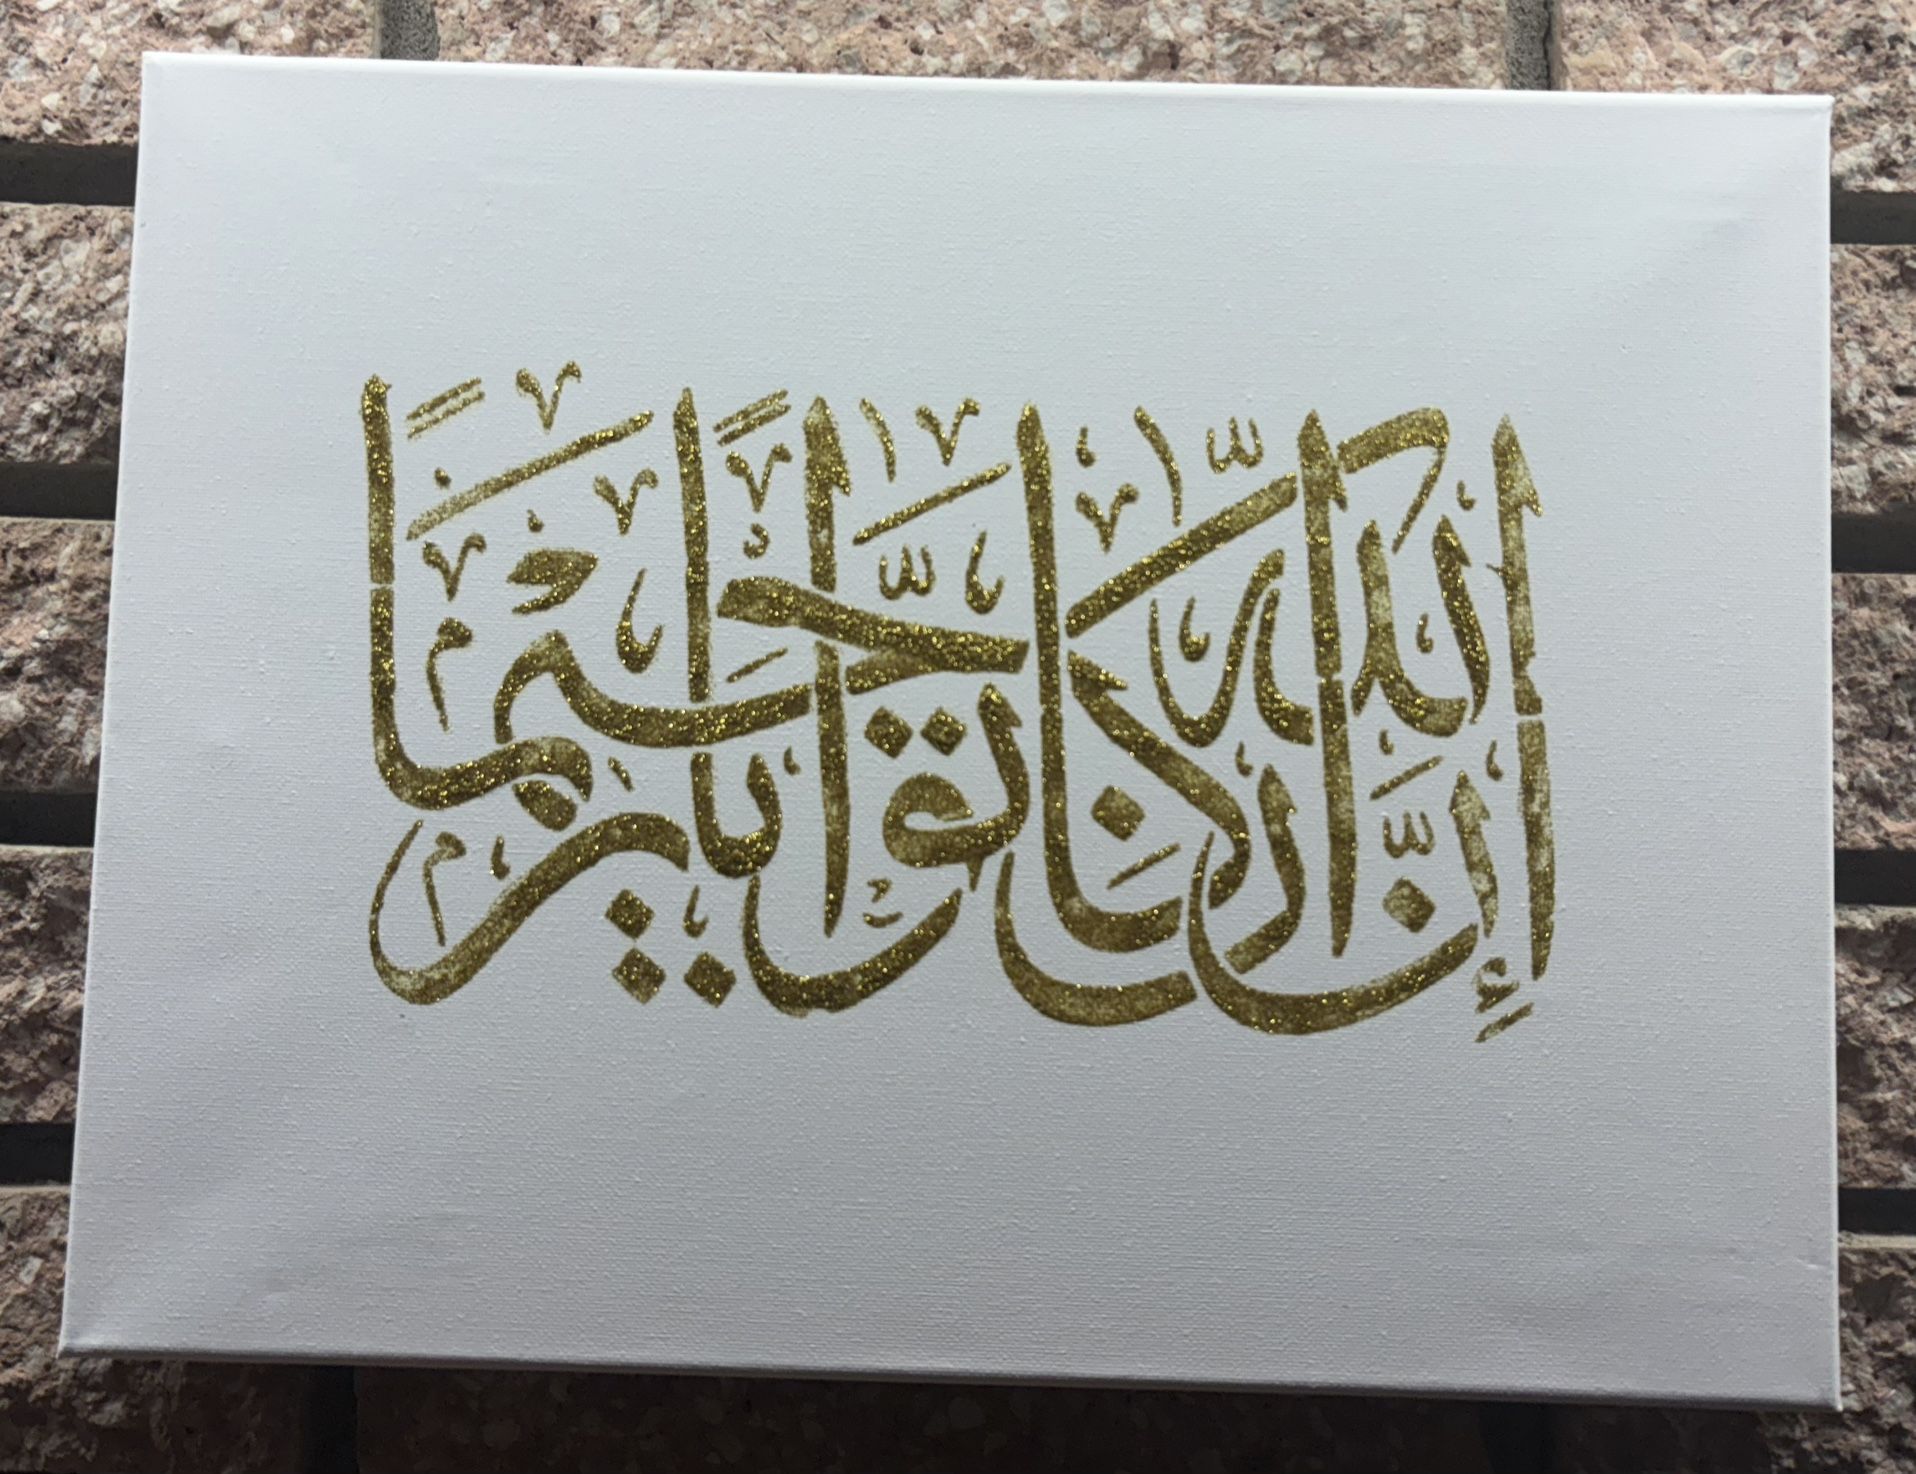 إِنَّ اللَّهَ كَانَ تَوَّابًا رَّحِيمًا